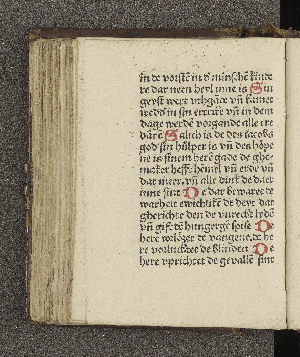 in de vorstē in d' minschē kinde
re dar neen heyl inne is Sin
geyst wert vthgāde vñ kamet
wedd' in sin erttrike vñ in dem
dage werdē vorgande alle ere
dāckē Salich is de des iacobs
god sin hülper is vñ des höpe
ne is sinem herē gade de ghe
maket hefft hēmel vñ erde vñ
dat meer, vñ alle dink de dar
inne sint De dar bewaret de
warheit ewichliken he deyt dat
gherichte den de vnrecht lydē
vñ gift de hungergē spise De
here vorlözet de vangene, de he
re vorluchtet de blinden De
here vprichtet de gevallē sint